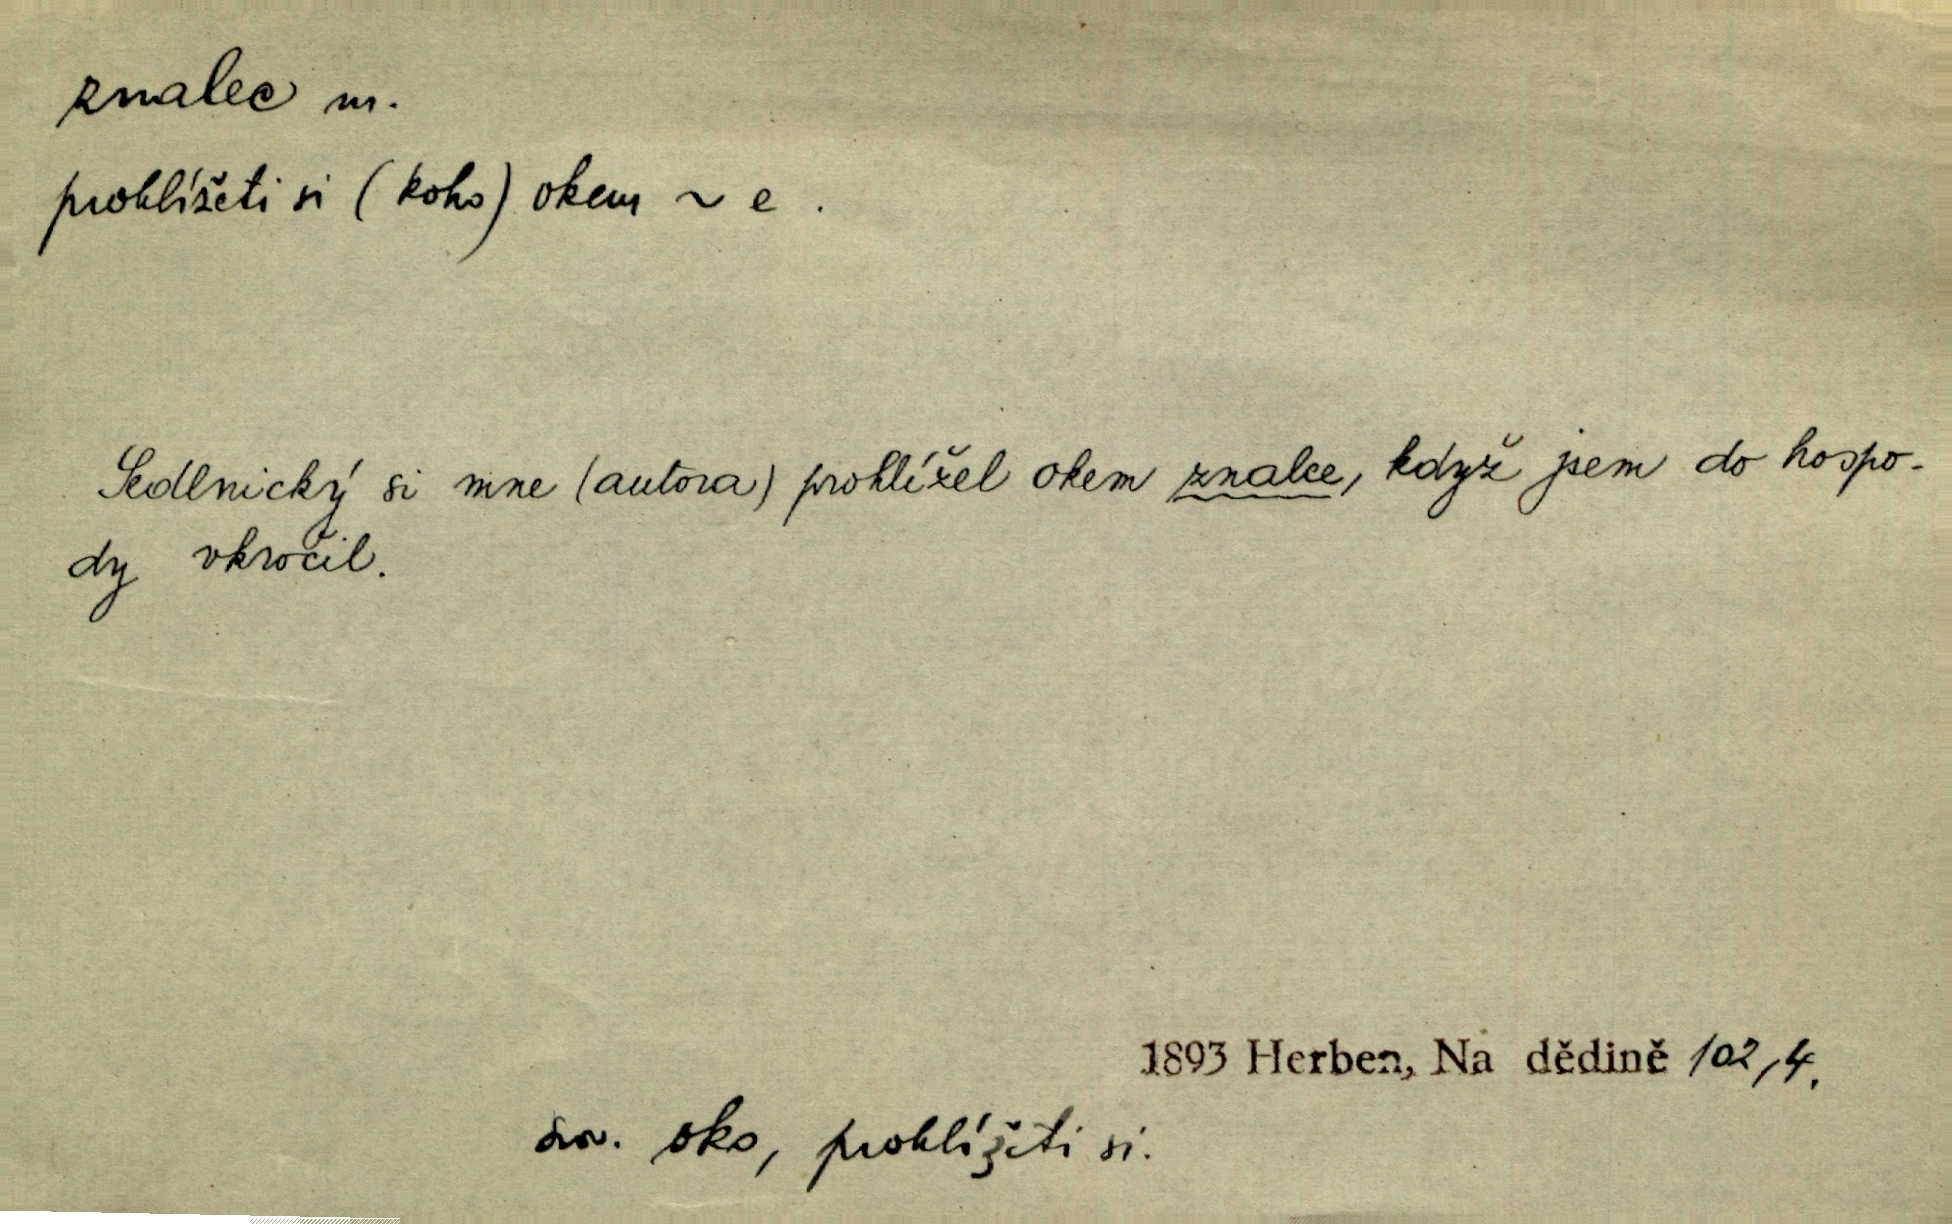 znalec m.
prohlížeti si (koho) okem ~ e .
Sedlnický si mne (autora) prohlížel okem znalce, když jsem do hospo-
dy vkročil.
1893 Herben, Na dědině 102,4.
srv. oko, prohlížeti si.